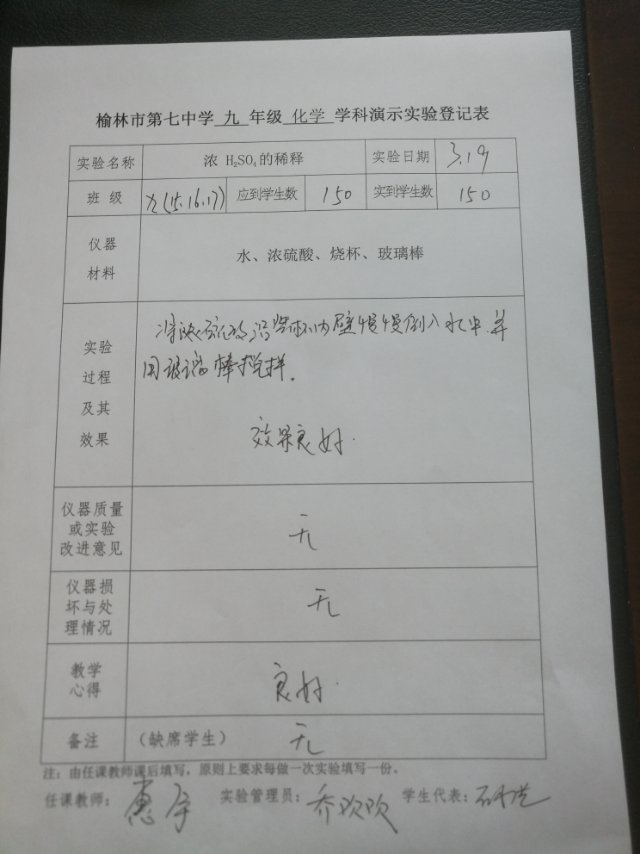 榆林市第七中学 九 年级 化学 学科演示实验登记表
实验名称 浓 H₂SO₄的稀释 实验日期 3.19
班 级 九(15.16.17) 应到学生数 150 实到学生数 150
仪器
材料
水、浓硫酸、烧杯、玻璃棒
实验
过程
及其
效果
将浓硫酸沿烧杯内壁慢慢倒入水中.并
用玻璃棒搅拌.
效果良好.
仪器质量
或实验
改进意见
无
仪器损
坏与处
理情况
无
教学
心得
良好.
备注 (缺席学生) 无
注：由任课教师课后填写，原则上要求每做一次实验填写一份。
任课教师： 惠 实验管理员： 乔欢欢 学生代表：